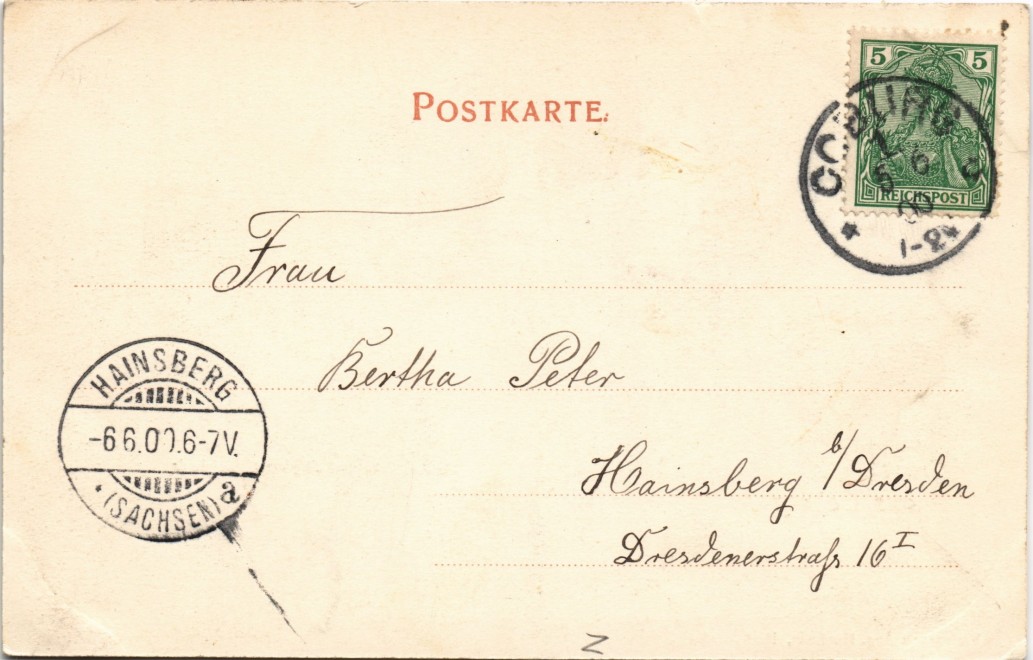 POSTKARTE.
5 5
REICHSPOST
COBURG
5 6
00
1-2N
Frau
Bertha Peter
Hainsberg b/Dresden
Dresdenerstraße 16 I
HAINSBERG
-6 6.00.6-7V.
* (SACHSEN) a
Z